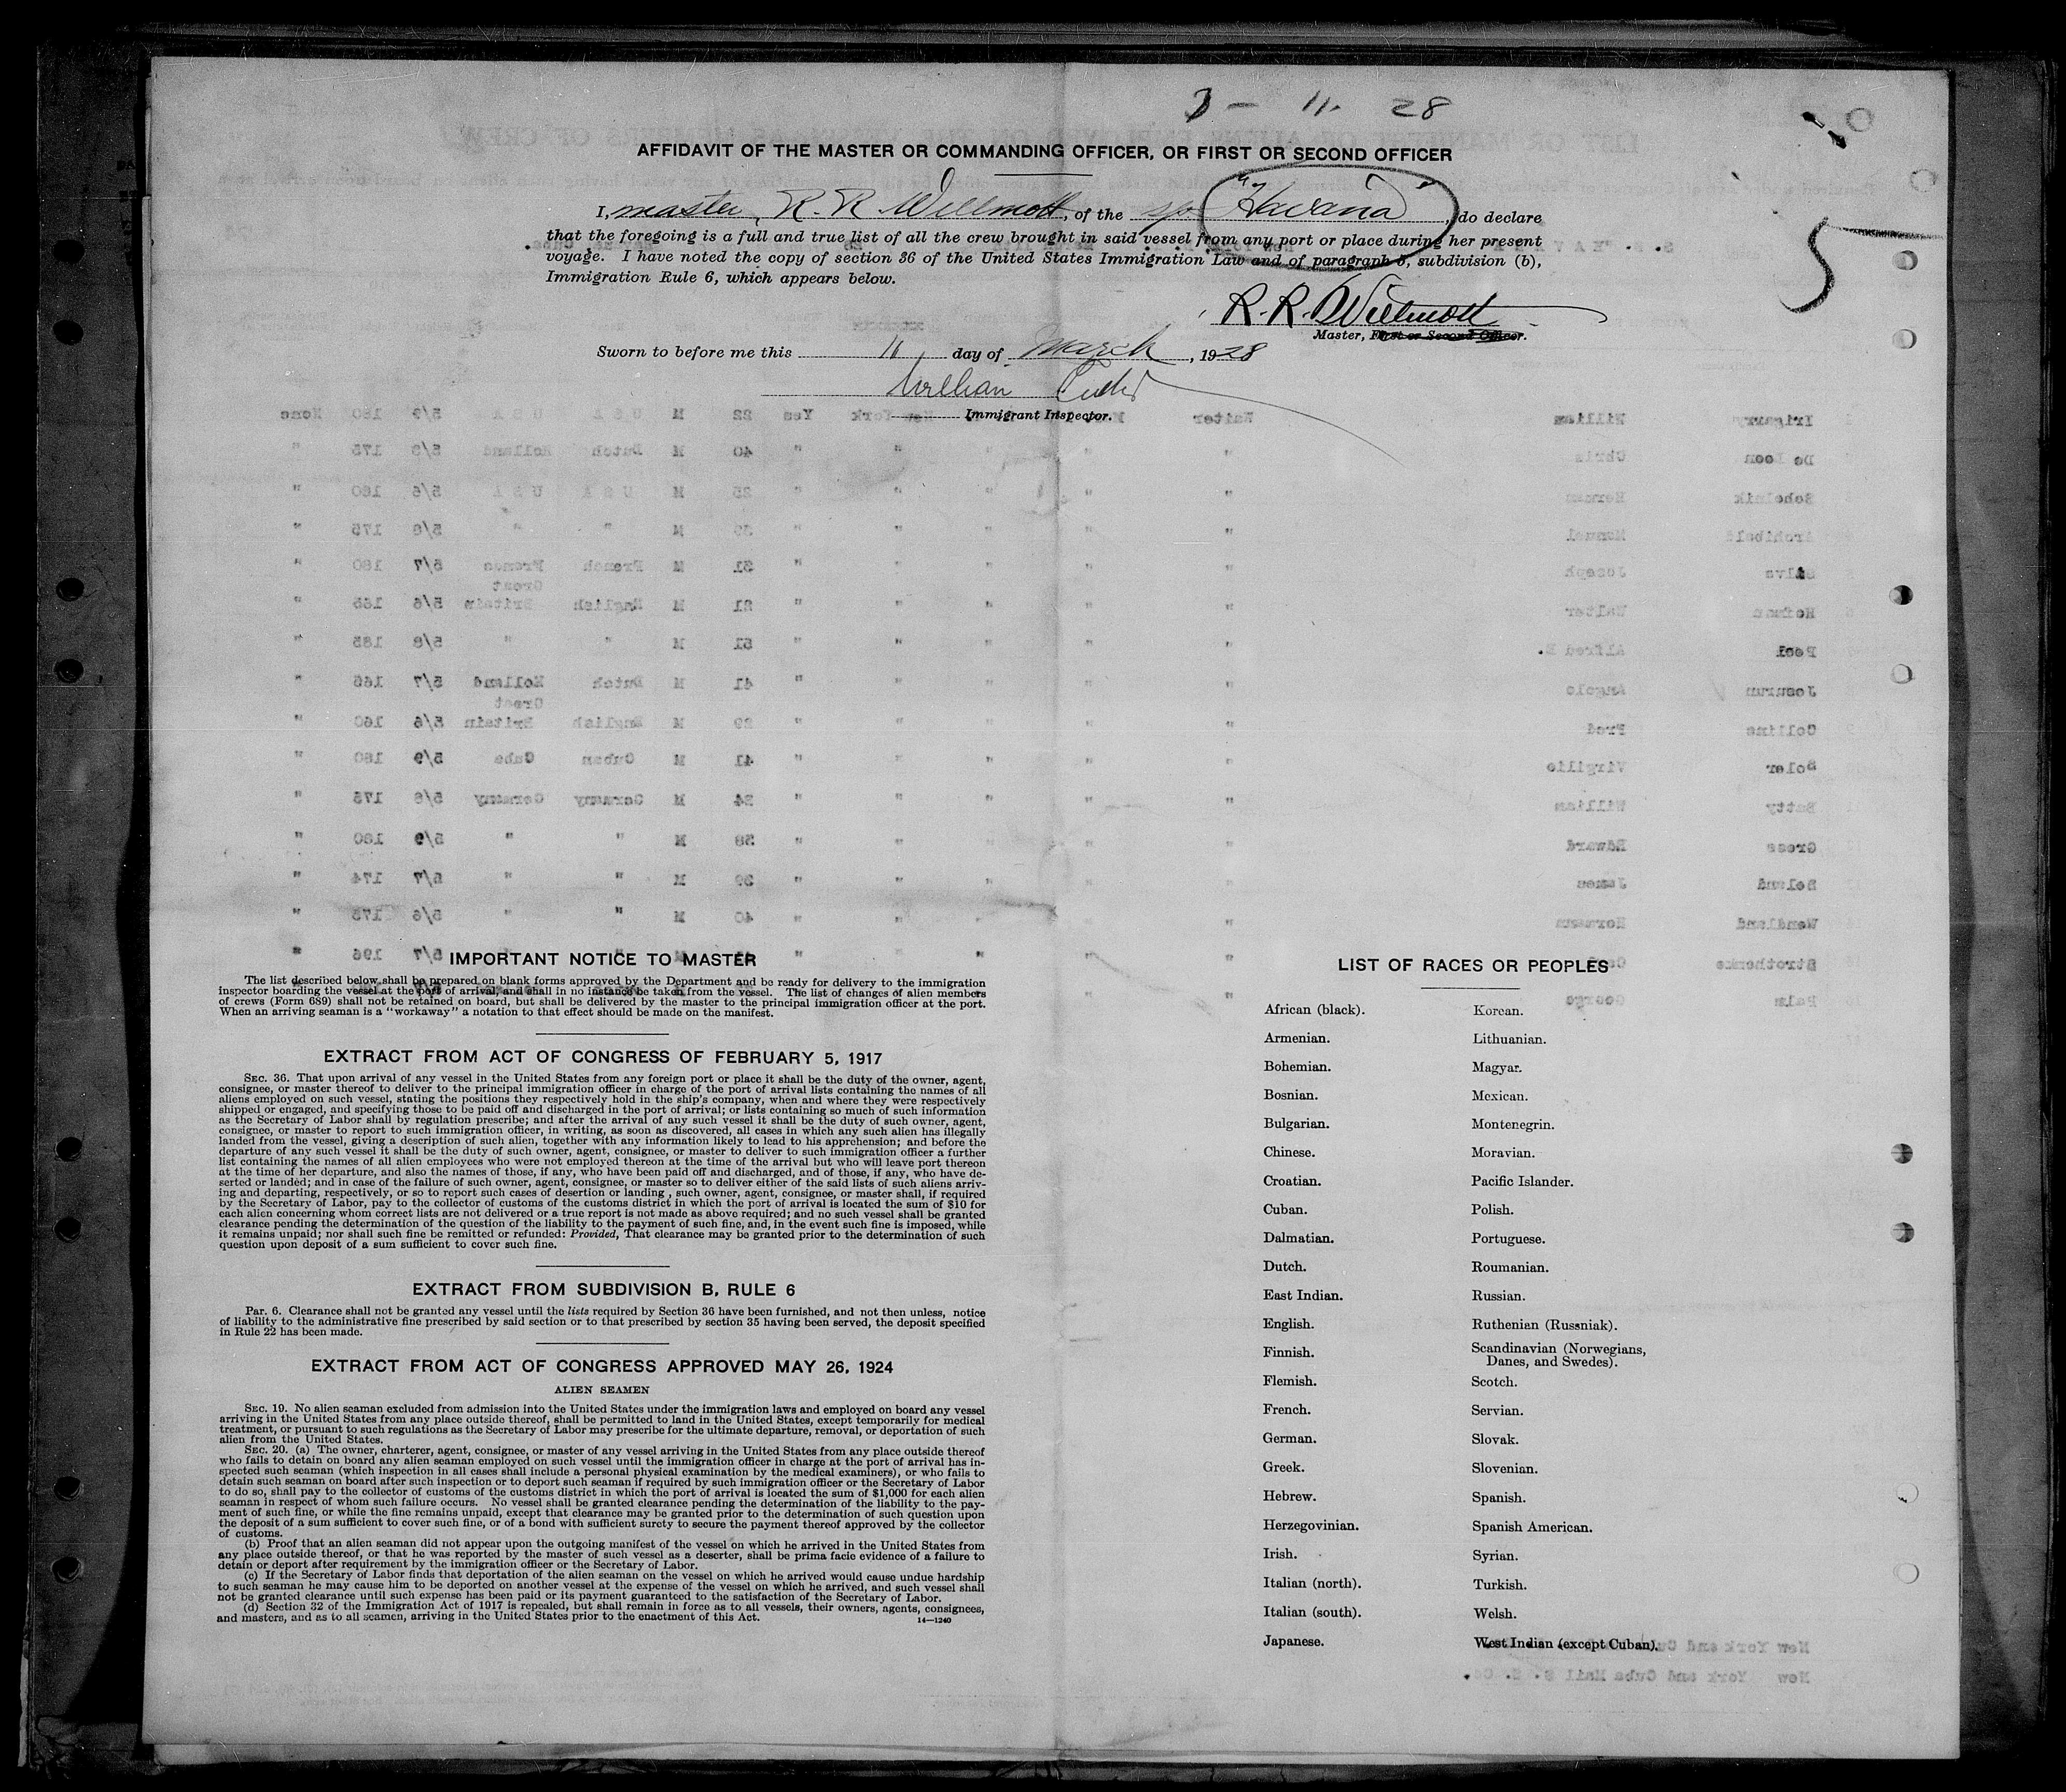 3 - 11. 28
AFFIDAVIT OF THE MASTER OR COMMANDING OFFICER, OR FIRST OR SECOND OFFICER
I, master, R. R. Willmott, of the "Havana", do declare
that the foregoing is a full and true list of all the crew brought in said vessel from any port or place during her present
voyage. I have noted the copy of section 36 of the United States Immigration Law and of paragraph 6, subdivision (b),
Immigration Rule 6, which appears below.
5
R. R. Willmott
Master, First or Second Officer.
Sworn to before me this 11 day of March, 1928
William
Immigrant Inspector.
IMPORTANT NOTICE TO MASTER
The list described below shall be prepared on blank forms approved by the Department and be ready for delivery to the immigration
inspector boarding the vessel at the port of arrival, and shall in no instance be taken from the vessel. The list of changes of alien members
of crews (Form 689) shall not be retained on board, but shall be delivered by the master to the principal immigration officer at the port.
When an arriving seaman is a "workaway" a notation to that effect should be made on the manifest.
EXTRACT FROM ACT OF CONGRESS OF FEBRUARY 5, 1917
SEC. 36. That upon arrival of any vessel in the United States from any foreign port or place it shall be the duty of the owner, agent,
consignee, or master thereof to deliver to the principal immigration officer in charge of the port of arrival lists containing the names of all
aliens employed on such vessel, stating the positions they respectively hold in the ship's company, when and where they were respectively
shipped or engaged, and specifying those to be paid off and discharged in the port of arrival; or lists containing so much of such information
as the Secretary of Labor shall by regulation prescribe; and after the arrival of any such vessel it shall be the duty of such owner, agent,
consignee, or master to report to such immigration officer, in writing, as soon as discovered, all cases in which any such alien has illegally
landed from the vessel, giving a description of such alien, together with any information likely to lead to his apprehension; and before the
departure of any such vessel it shall be the duty of such owner, agent, consignee, or master to deliver to such immigration officer a further
list containing the names of all alien employees who were not employed thereon at the time of the arrival but who will leave port thereon
at the time of her departure, and also the names of those, if any, who have been paid off and discharged, and of those, if any, who have de-
serted or landed; and in case of the failure of such owner, agent, consignee, or master so to deliver either of the said lists of such aliens arriv-
ing and departing, respectively, or so to report such cases of desertion or landing, such owner, agent, consignee, or master shall, if required
by the Secretary of Labor, pay to the collector of customs of the customs district in which the port of arrival is located the sum of $10 for
each alien concerning whom correct lists are not delivered or a true report is not made as above required; and no such vessel shall be granted
clearance pending the determination of the question of the liability to the payment of such fine, and, in the event such fine is imposed, while
it remains unpaid; nor shall such fine be remitted or refunded: Provided, That clearance may be granted prior to the determination of such
question upon deposit of a sum sufficient to cover such fine.
EXTRACT FROM SUBDIVISION B, RULE 6
Par. 6. Clearance shall not be granted any vessel until the lists required by Section 36 have been furnished, and not then unless, notice
of liability to the administrative fine prescribed by said section or to that prescribed by section 35 having been served, the deposit specified
in Rule 22 has been made.
EXTRACT FROM ACT OF CONGRESS APPROVED MAY 26, 1924
ALIEN SEAMEN
SEC. 19. No alien seaman excluded from admission into the United States under the immigration laws and employed on board any vessel
arriving in the United States from any place outside thereof, shall be permitted to land in the United States, except temporarily for medical
treatment, or pursuant to such regulations as the Secretary of Labor may prescribe for the ultimate departure, removal, or deportation of such
alien from the United States.
SEC. 20. (a) The owner, charterer, agent, consignee, or master of any vessel arriving in the United States from any place outside thereof
who fails to detain on board any alien seaman employed on such vessel until the immigration officer in charge at the port of arrival has in-
spected such seaman (which inspection in all cases shall include a personal physical examination by the medical examiners), or who fails to
detain such seaman on board after such inspection or to deport such seaman if required by such immigration officer or the Secretary of Labor
to do so, shall pay to the collector of customs of the customs district in which the port of arrival is located the sum of $1,000 for each alien
seaman in respect of whom such failure occurs. No vessel shall be granted clearance pending the determination of the liability to the pay-
ment of such fine, or while the fine remains unpaid, except that clearance may be granted prior to the determination of such question upon
the deposit of a sum sufficient to cover such fine, or of a bond with sufficient surety to secure the payment thereof approved by the collector
of customs.
(b) Proof that an alien seaman did not appear upon the outgoing manifest of the vessel on which he arrived in the United States from
any place outside thereof, or that he was reported by the master of such vessel as a deserter, shall be prima facie evidence of a failure to
detain or deport after requirement by the immigration officer or the Secretary of Labor.
(c) If the Secretary of Labor finds that deportation of the alien seaman on the vessel on which he arrived would cause undue hardship
to such seaman he may cause him to be deported on another vessel at the expense of the vessel on which he arrived, and such vessel shall
not be granted clearance until such expense has been paid or its payment guaranteed to the satisfaction of the Secretary of Labor.
(d) Section 32 of the Immigration Act of 1917 is repealed, but shall remain in force as to all vessels, their owners, agents, consignees,
and masters, and as to all seamen, arriving in the United States prior to the enactment of this Act.
14—1240
LIST OF RACES OR PEOPLES
African (black).
Armenian.
Bohemian.
Bosnian.
Bulgarian.
Chinese.
Croatian.
Cuban.
Dalmatian.
Dutch.
East Indian.
English.
Finnish.
Flemish.
French.
German.
Greek.
Hebrew.
Herzegovinian.
Irish.
Italian (north).
Italian (south).
Japanese.
Korean.
Lithuanian.
Magyar.
Mexican.
Montenegrin.
Moravian.
Pacific Islander.
Polish.
Portuguese.
Roumanian.
Russian.
Ruthenian (Russniak).
Scandinavian (Norwegians,
Danes, and Swedes).
Scotch.
Servian.
Slovak.
Slovenian.
Spanish.
Spanish American.
Syrian.
Turkish.
Welsh.
West Indian (except Cuban).